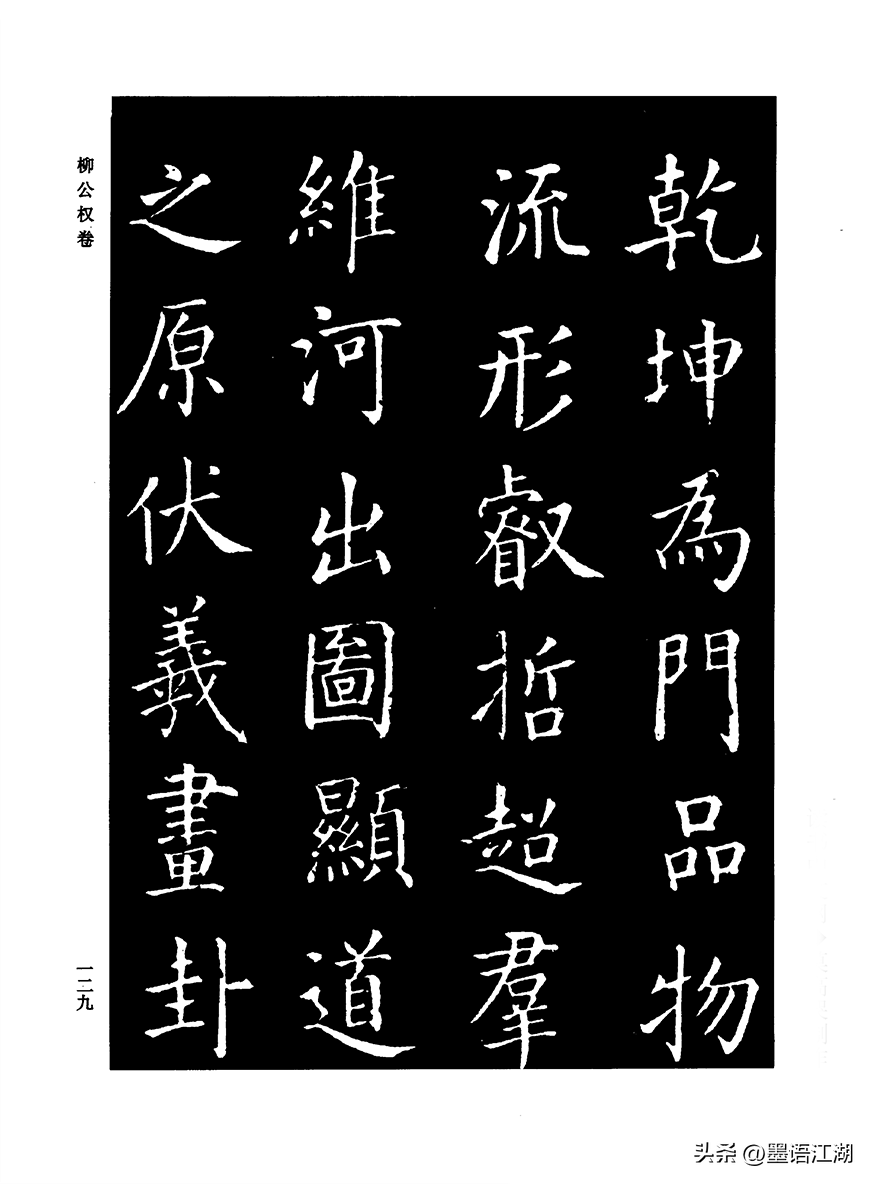 乾坤為門品物
流形叡哲超羣
維河出圖顯道
之原伏羲畫卦
柳公权卷
一二九
头条 @墨语江湖